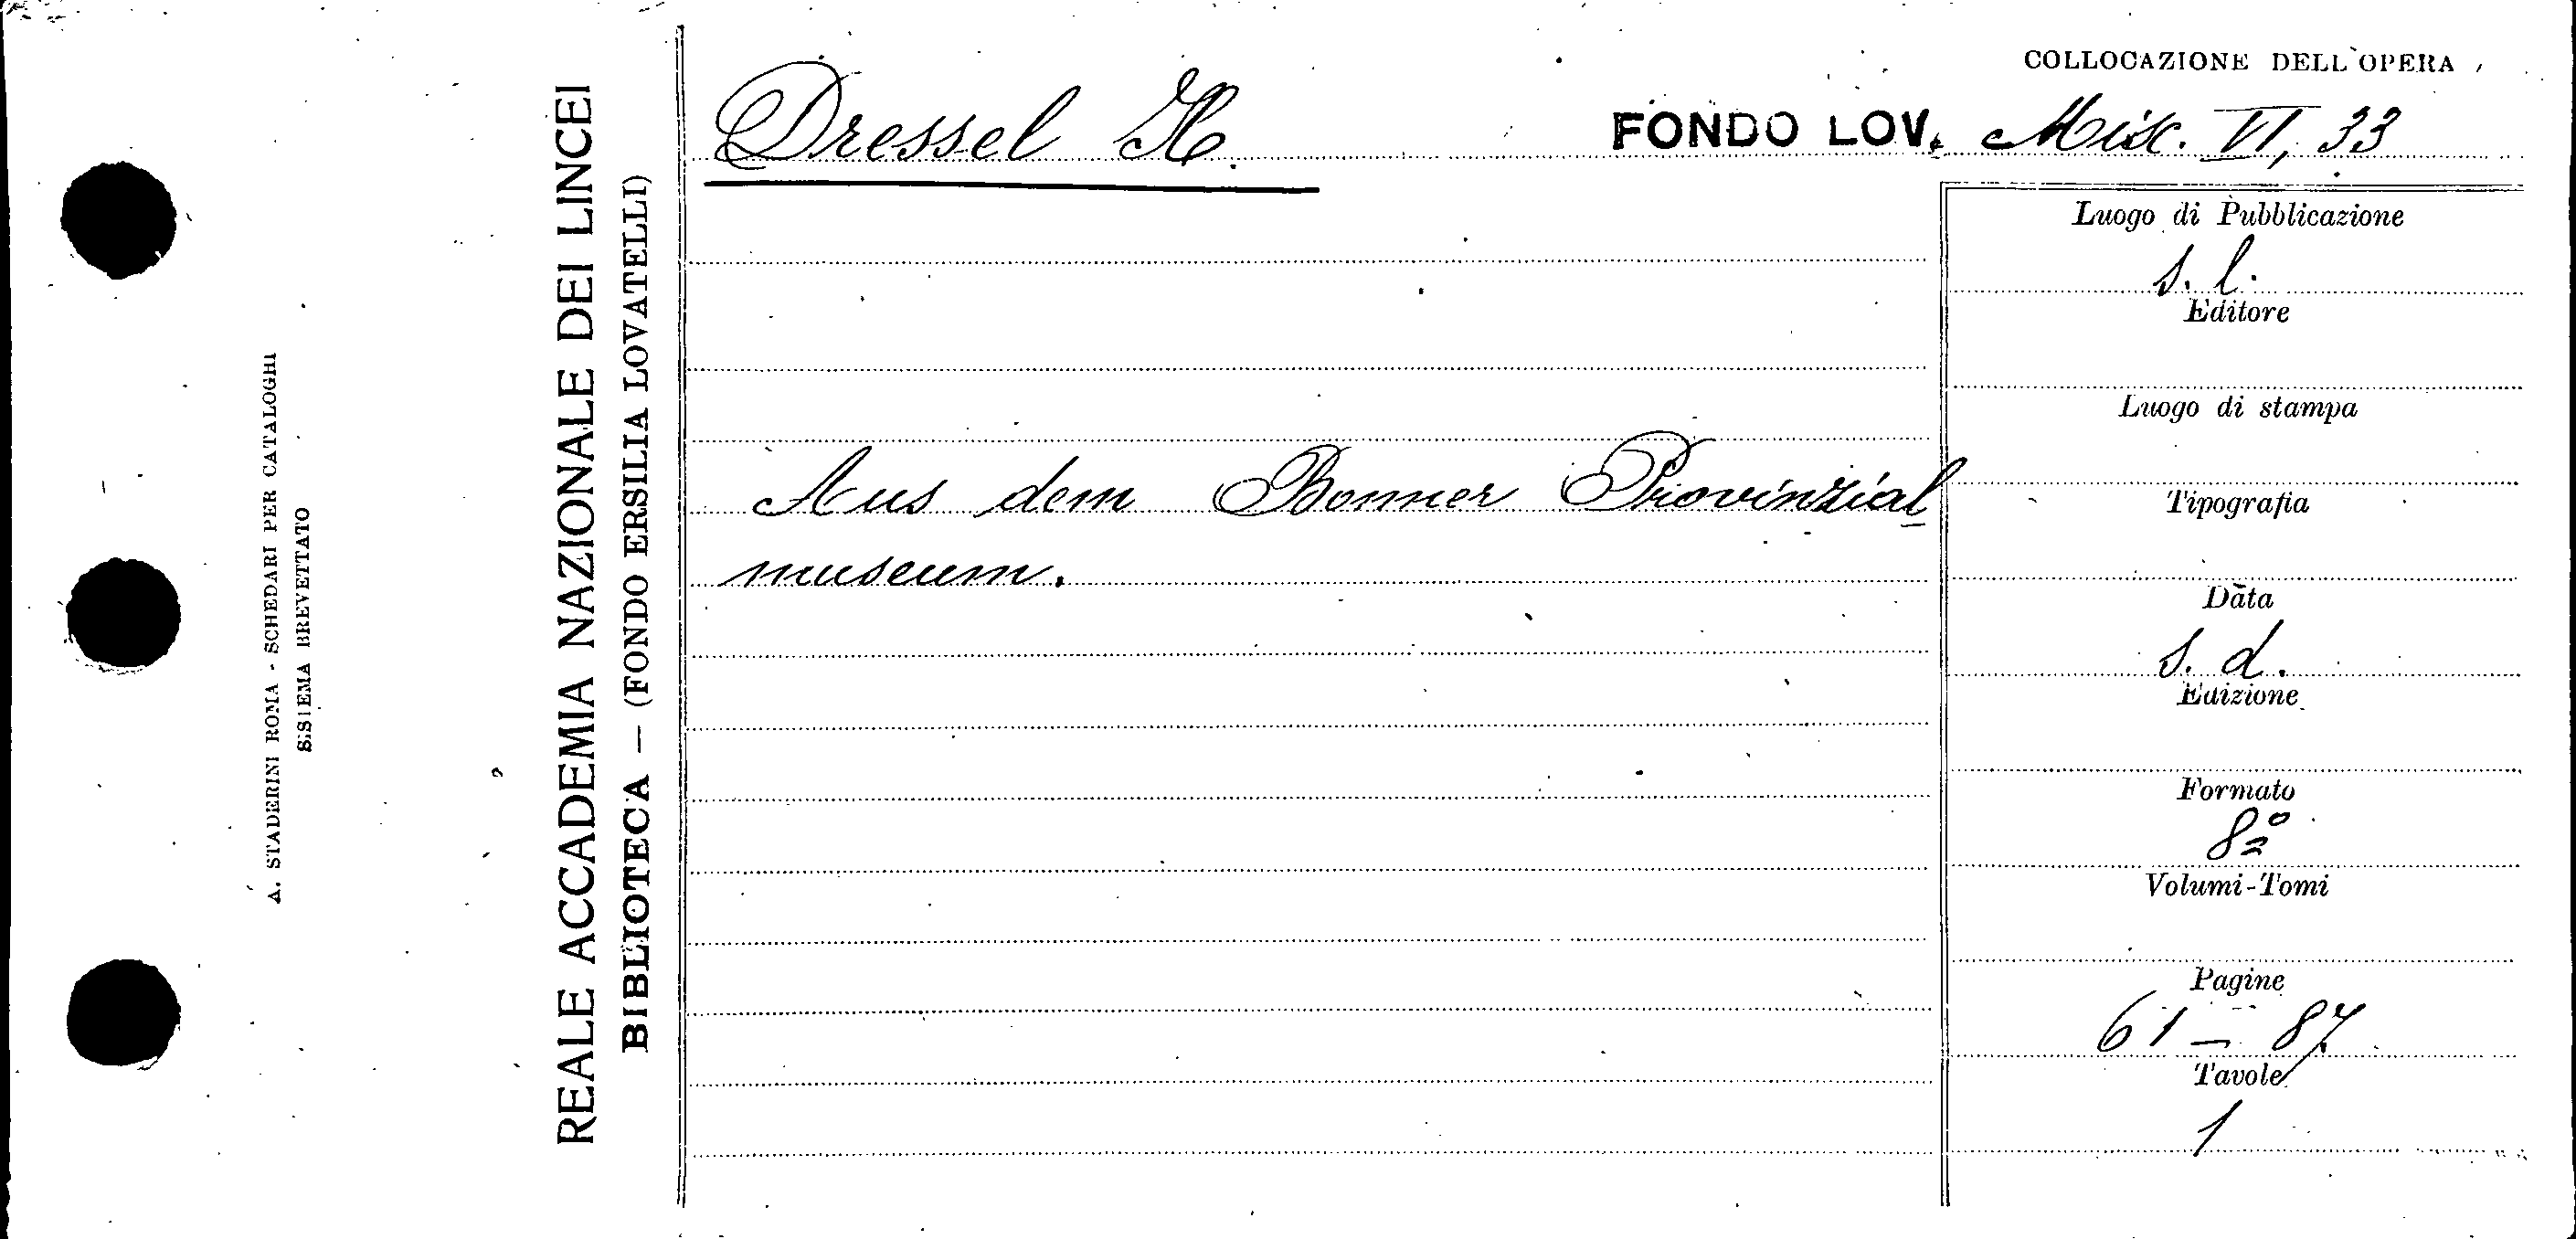 COLLOCAZIONE DELL'OPERA
Dressel H.
FONDO LOV. Misc. VI, 33
Aus dem Bonner Provinzial
museum.
Luogo di Pubblicazione
s. l.
Editore
Luogo di stampa
Tipografia
Data
s. d.
Edizione
Formato
8º
Volumi-Tomi
Pagine
61 - 87
Tavole
1
REALE ACCADEMIA NAZIONALE DEI LINCEI
BIBLIOTECA — (FONDO ERSILIA LOVATELLI)
A. STADERINI ROMA - SCHEDARI PER CATALOGHI
SISIEMA BREVETTATO